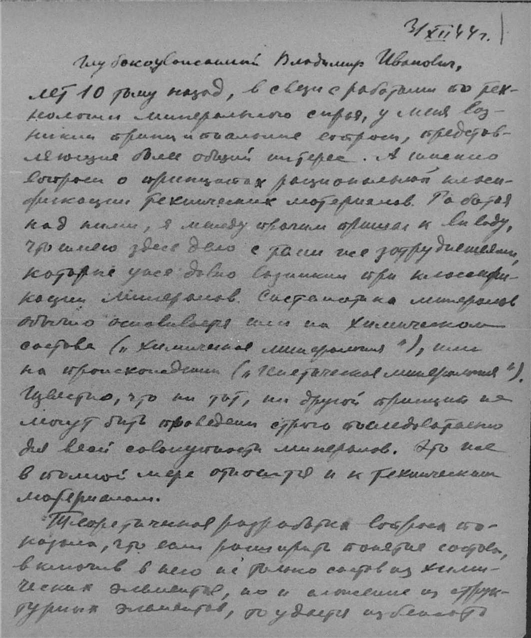 3/XII 44 г.
Глубокоуважаемый Владимир Иванович,
лет 10 тому назад, в связи с работами по тех-
нологии минерального сырья, у меня воз-
никли принципиальные вопросы, представ-
ляющие более общий интерес. А именно
вопросы о принципах рациональной класси-
фикации технических материалов. Работая
над ними, я между прочим пришел к выводу,
что имею здесь дело с теми же затруднениями,
которые уже давно возникли при классифи-
кации минералов. Систематика минералов
обычно основывается или на химическом
составе („химическая минералогия"), или
на происхождении („генетическая минералогия").
Известно, что ни тот, ни другой принцип не
могут быть проведены строго последовательно
для всей совокупности минералов. Это же
в полной мере относится и к техническим
материалам.
Теоретическая разработка вопроса по-
казала, что если расширить понятие состава,
включив в него не только состав из хими-
ческих элементов, но и сложение из струк-
турных элементов, то удается избежать